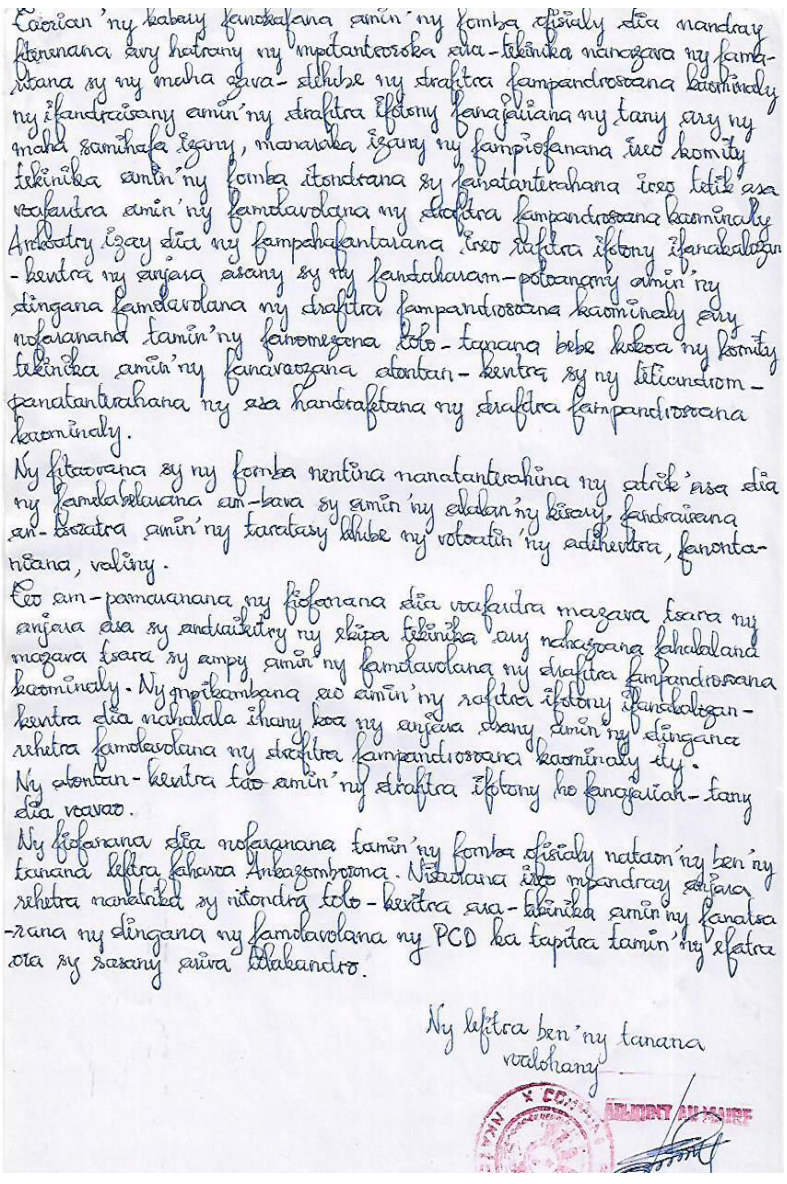 Taorian'ny kabary fanokafana amin'ny fomba ofisialy dia nandray
fitenenana avy hatrany ny mpitantsoroka ara-tekinika nanazava ny fama-
ritana sy ny maha zava-dehibe ny drafitra fampandrosoana kaominaly
ny ifandraisany amin'ny drafitra ifotony fanajariana ny tany ary ny
maha samihafa izany, manaraka izany ny fampiofanana ireo komity
tekinika amin'ny fomba itondrana sy fanatanterahana ireo tetik'asa
voafaritra amin'ny famolavolana ny drafitra fampandrosoana kaominaly
Ankoatry izay dia ny fampahafantarana ireo rafitra ifotony ifanakalozan
-kevitra ny anjara asany sy ny fandaharam-potoanany amin'ny
dingana famolavolana ny drafitra fampandrosoana kaominaly ary
nofaranana tamin'ny fanomezana tolo-tanana bebe kokoa ny komity
tekinika amin'ny fanavaozana atontan-kevitra sy ny tetiandrom-
panatanterahana ny asa handrafetana ny drafitra fampandrosoana
kaominaly.
Ny fitaovana sy ny fomba nentina nanatanterahina ny atrik'asa dia
ny famelabelarana am-bava sy amin'ny alalan'ny kisary, fandraisana
an-tsoratra amin'ny taratasy lehibe ny votoatin'ny adihevitra, fanonta-
niana, valiny.
Teo am-pamaranana ny fiofanana dia voafaritra mazava tsara ny
anjara asa sy andraikitry ny ekipa tekinika ary nahazoana fahalalana
mazava tsara sy ampy amin'ny famolavolana ny drafitra fampandrosoana
kaominaly. Ny mpikambana ao amin'ny rafitra ifotony ifanakalozan-
kevitra dia nahalala ihany koa ny anjara asany amin'ny dingana
rehetra famolavolana ny drafitra fampandrosoana kaominaly ity.
Ny atontan-kevitra tao amin'ny drafitra ifotony ho fanajarian-tany
dia voavao.
Ny fiofanana dia nofaranana tamin'ny fomba ofisialy nataon'ny ben'ny
tanana lefitra faharoa Ankazomborona. Nisaorana ireo mpandray anjara
rehetra nanatrika sy nitondra tolo-kevitra ara-tekinika amin'ny fanatsa
-rana ny dingana ny famolavolana ny PCD ka tapitra tamin'ny efatra
ora sy sasany ariva tolakandro.
Ny lefitra ben'ny tanana
voalohany
ADJOINT AU MAIRE